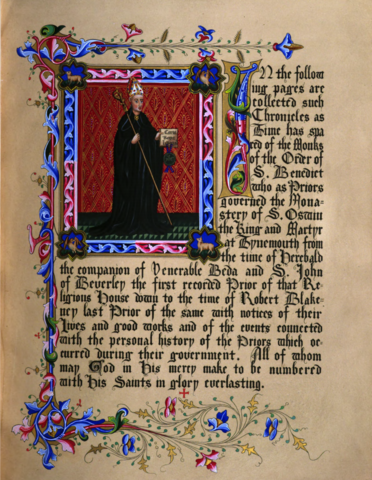 IN the follow
ing pages are
collected such
Chronicles as
Time has spa
red of the Monks
of the Order of
S. Benedict
who as Priors
governed the Mona-
stery of S. Oswin
the King and Martyr
at Tynemouth from
the time of Herebald
the companion of Venerable Beda and S. John
of Beverley the first recorded Prior of that Re-
ligious House down to the time of Robert Blake-
ney last Prior of the same with notices of their
lives and good works and of the events connected
with the personal history of the Priors which oc-
curred during their government. All of whom
may God in His mercy make to be numbered
with His Saints in glory everlasting.